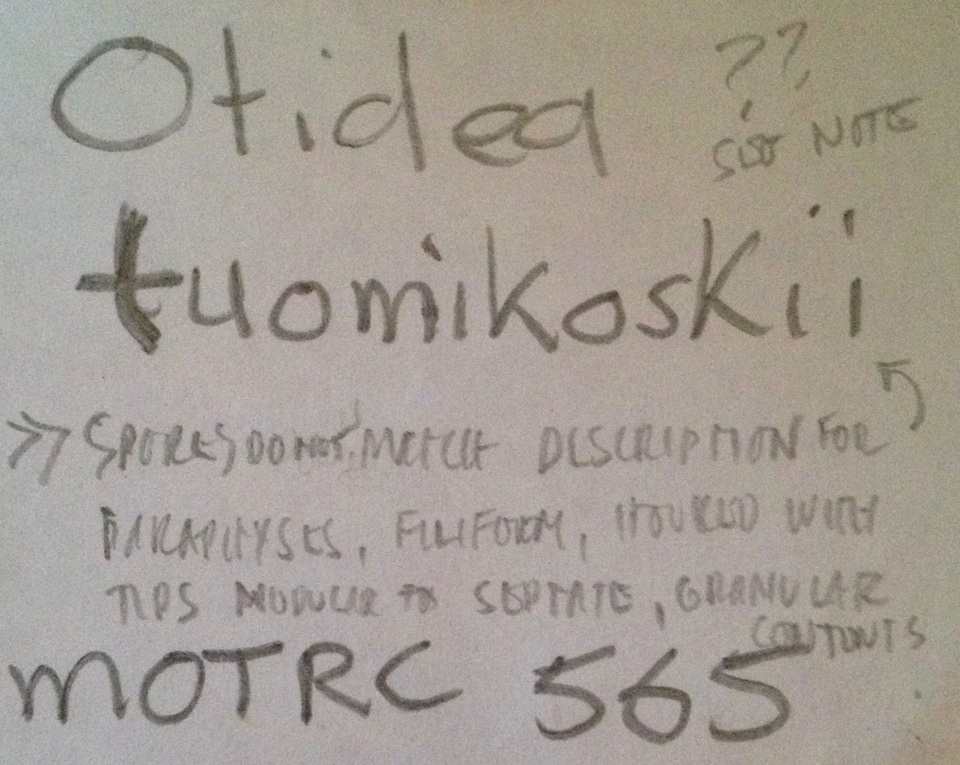 Otidea ??
SEE NOTE
tuomikoskii
>> SPORES DO NOT MATCH DESCRIPTION FOR
PARAPHYSES, FILIFORM, HOOKED WITH
TIPS NODULAR TO SEPTATE, GRANULAR
CONTENTS
MOTRC 565